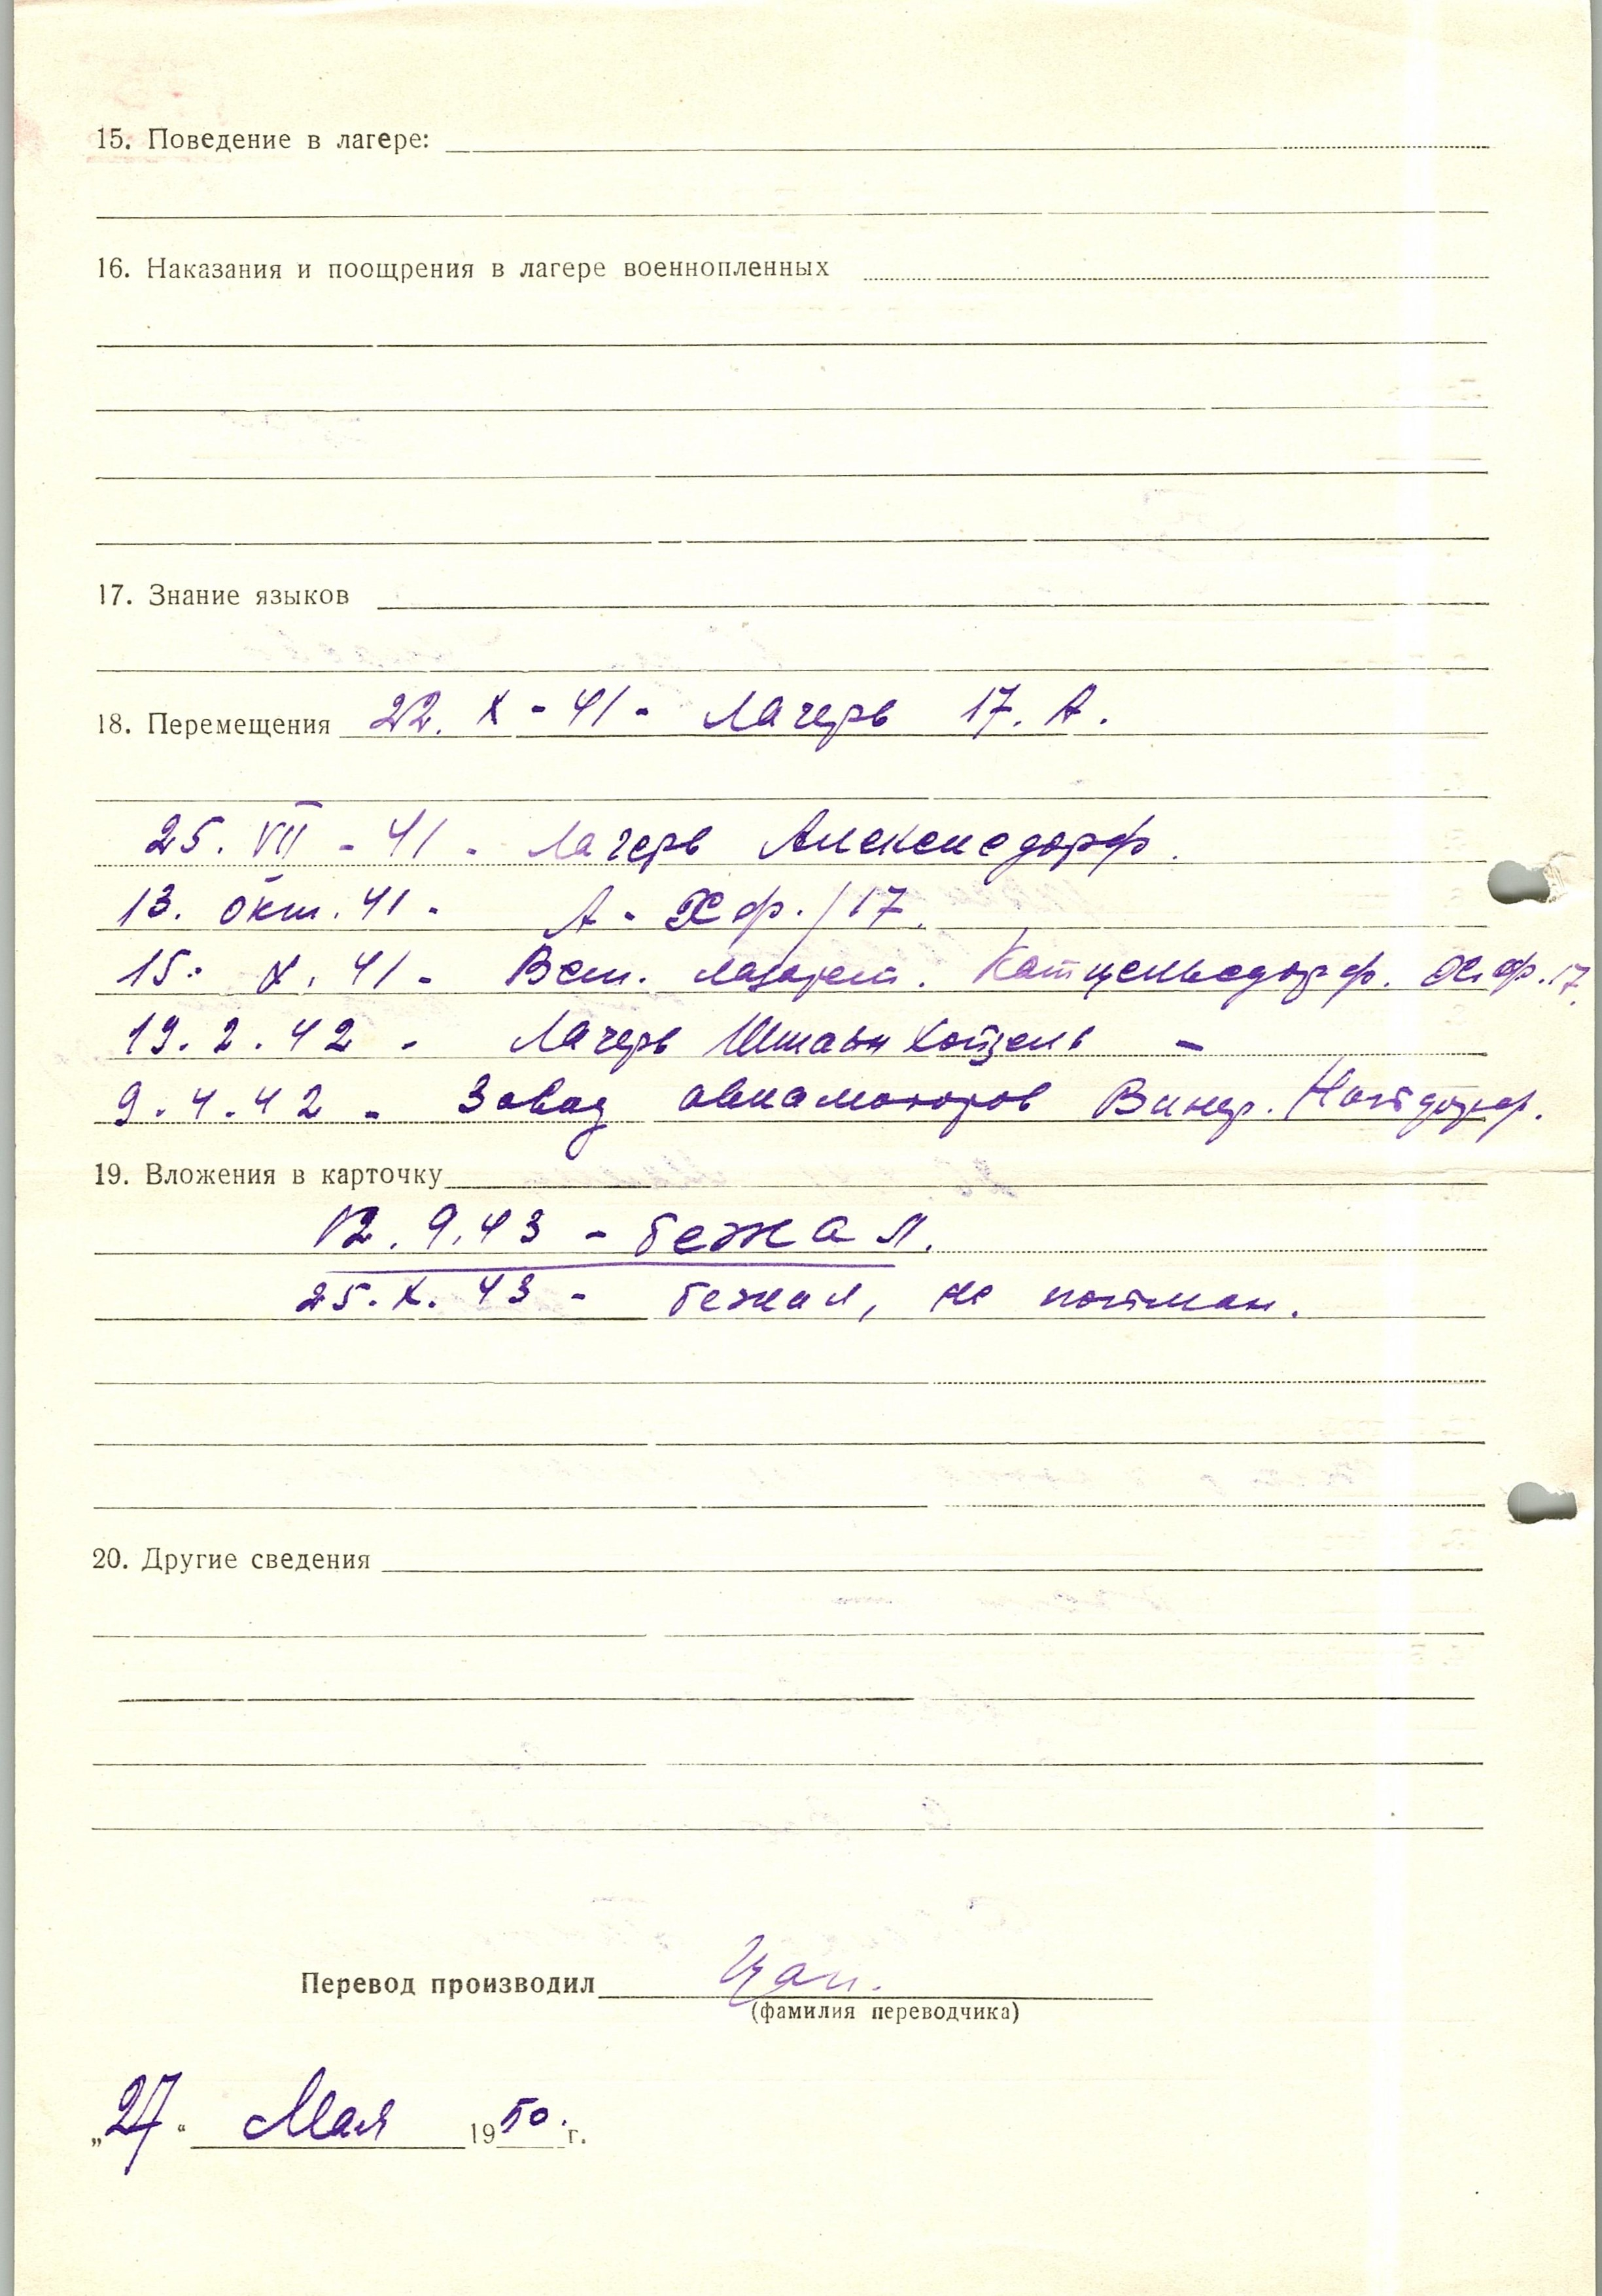 15. Поведение в лагере:
16. Наказания и поощрения в лагере военнопленных
17. Знание языков
18. Перемещения 22. X - 41 - Лагерь 17. А.
25. VII - 41 - Лагерь Алексисдорф.
13. окт. 41 - А - /17.
15. X. 41 - Вет. лазарет. Катцельсдорф. 17.
19.2.42 - Лагерь -
9.4.42 - Завод авиамоторов Винер. Нойдорф.
19. Вложения в карточку
12.9.43 - бежал.
25.X.43 - бежал, не пойман.
20. Другие сведения
Перевод производил Цап.
(фамилия переводчика)
„27“ Мая 1950. г.